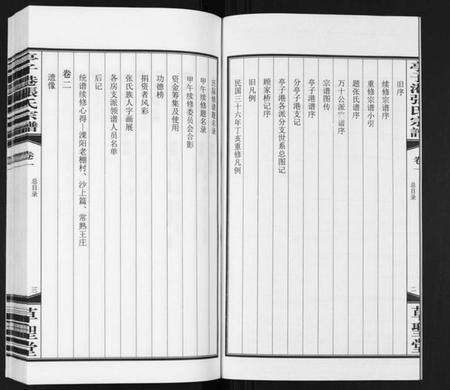 亭子港張氏宗譜
卷一
總目录
二
草聖堂
旧序
续修宗谱序
重修宗谱小引
题张氏谱序
万十公派谱序
宗谱图传
亭子港谱序
分亭子港支记
亭子港各派分支世系总图记
顾家桥记序
旧凡例
民国三十六年丁亥重修凡例
甲午续修题名录
甲午续修委员会合影
资金筹集及使用
功德榜
捐资者风彩
张氏族人字画展
各房支派领谱人员名单
后记
统谱续修心得：溧阳老棚村、沙上篇、常熟王庄
卷二
遗像
亭子港張氏宗譜
卷一
总目录
三
草聖堂